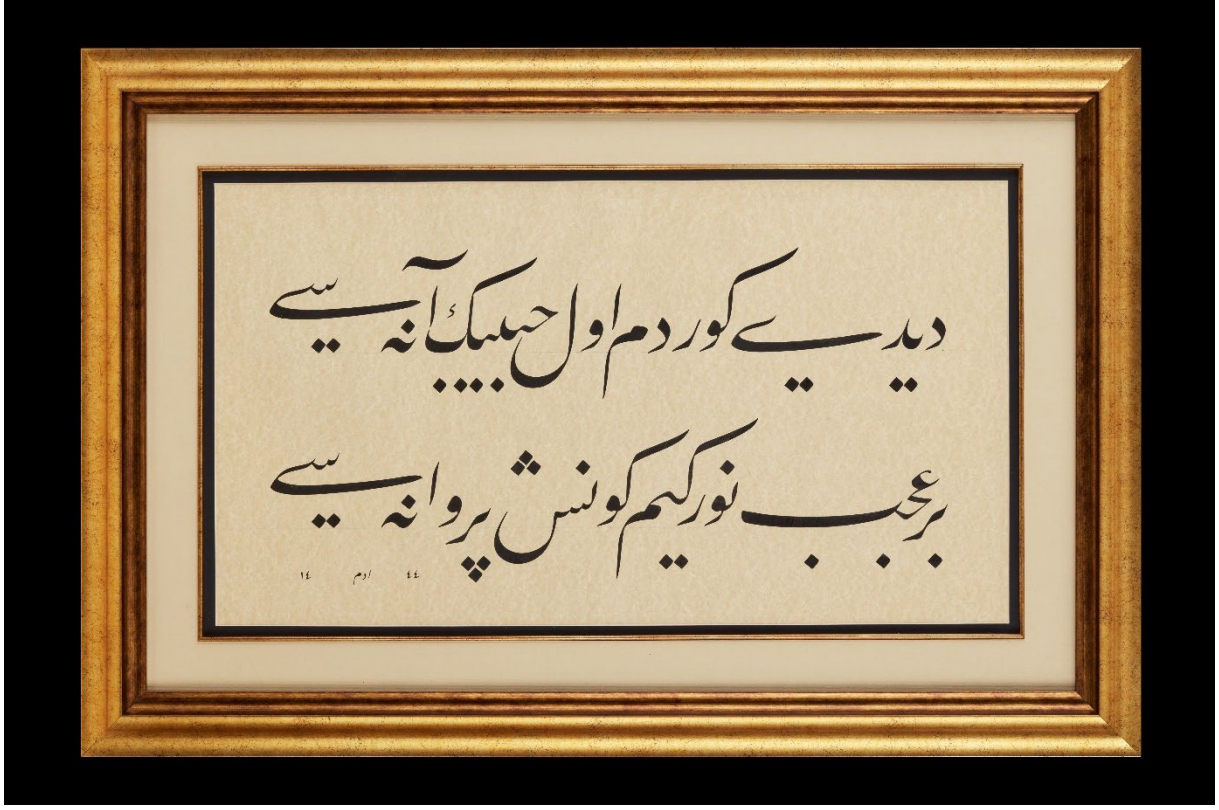 ديدے كوردم اول حبيبڭ آنه سے
بر عجب نور كيم كونش پروانه سے
١٤ ادم ٤٤